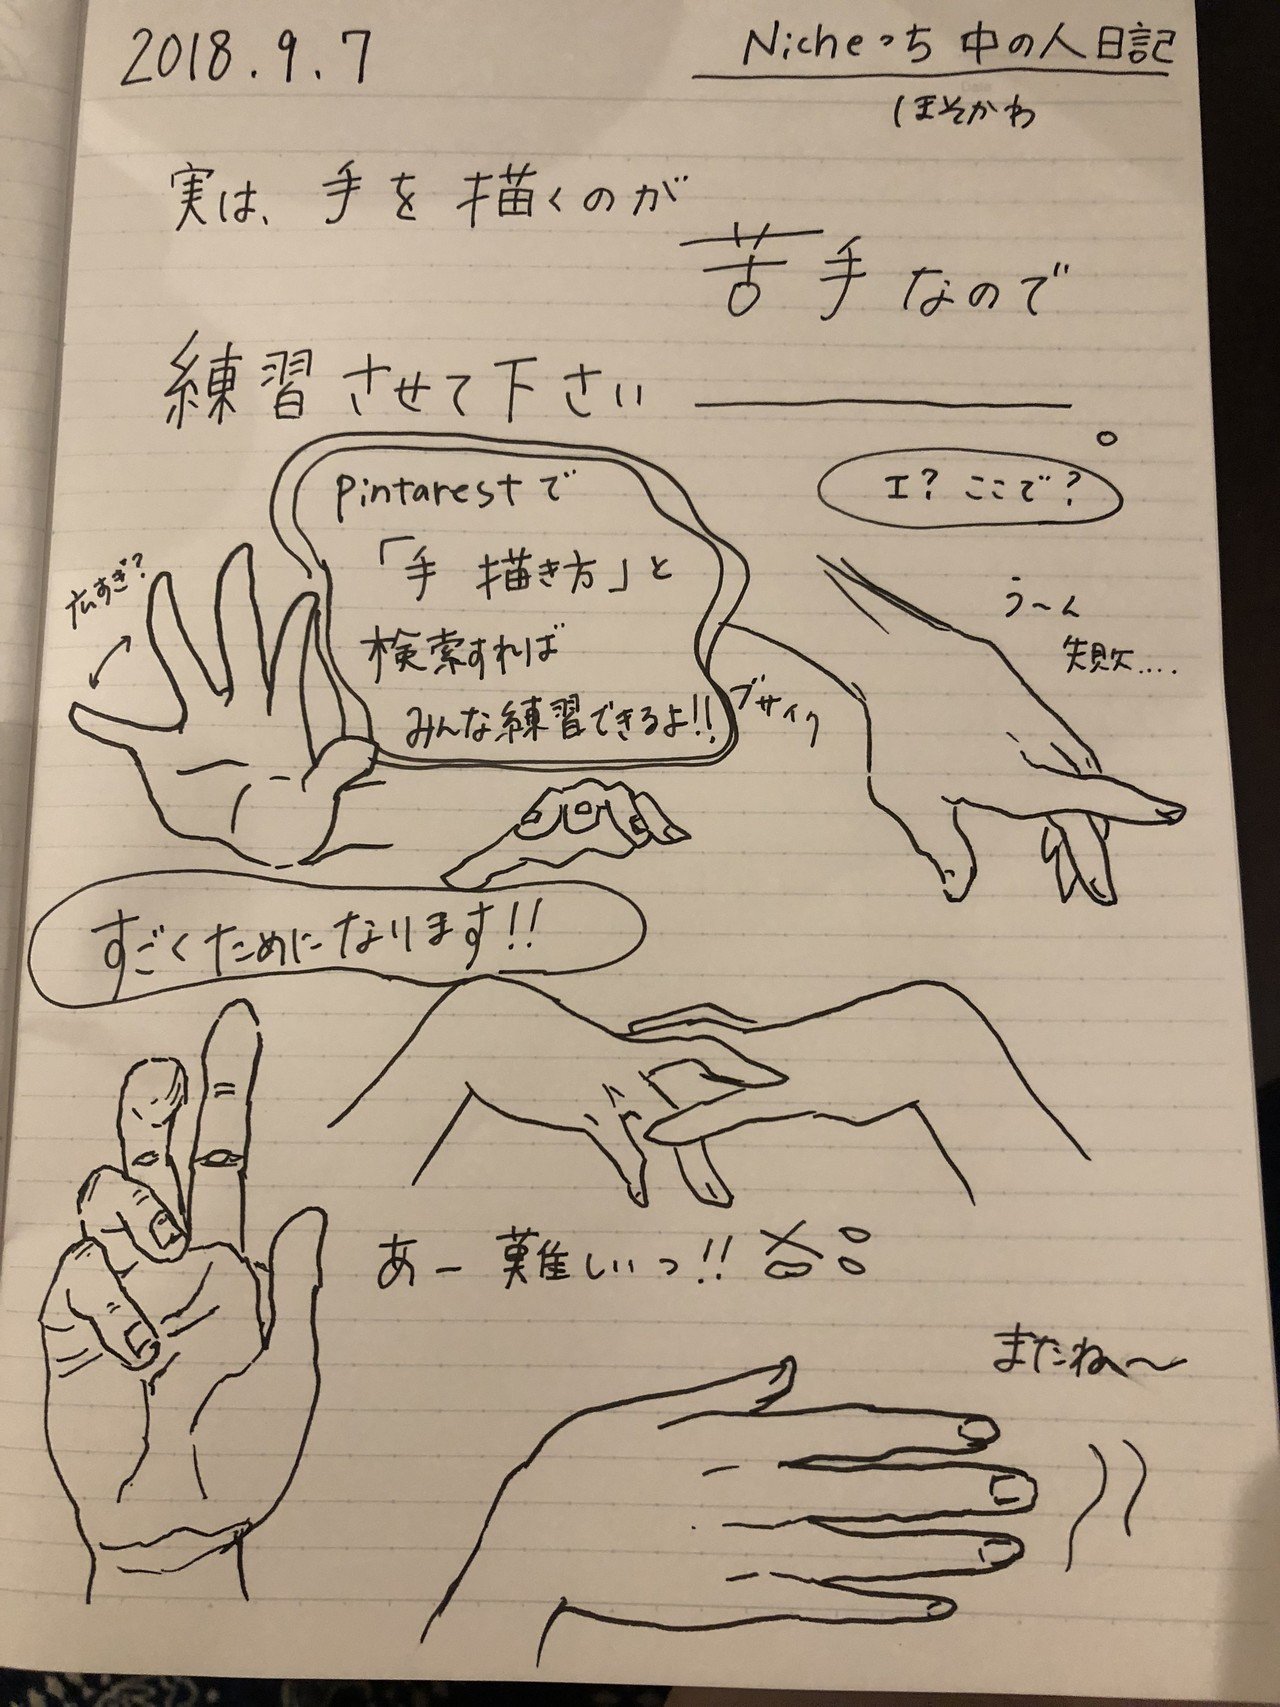 2018.9.7
Nicheっち 中の人日記
ほそかわ
実は、手を描くのが
苦手なので
練習させて下さい
エ? ここで?
pintarestで
「手 描き方」と
検索すれば
みんな練習できるよ!!
広すぎ?
う〜ん
失敗....
ブサイク
すごくためになります!!
あー難しいっ!!
またね〜